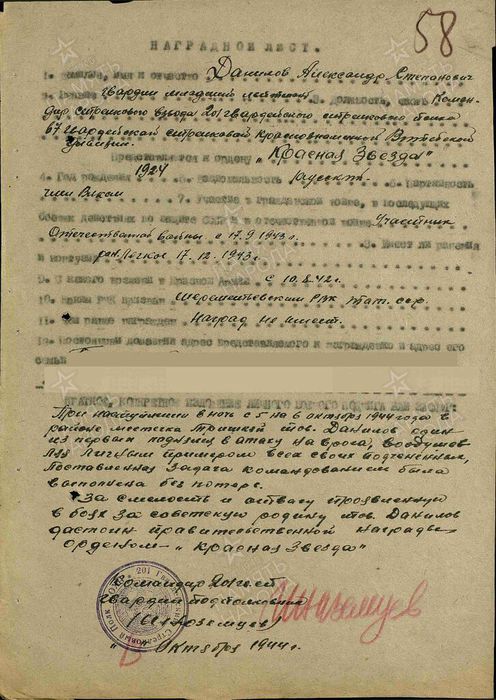 58
НАГРАДНОЙ ЛИСТ.
1. Фамилия, имя и отчество Данилов Александр Степанович
2. Звание гвардии младший лейтенант 3. Должность, часть Коман-
дир стрелкового взвода 201 гвардейского стрелкового полка
67 гвардейской стрелковой Краснознаменной Витебской
дивизии.
Представляется к ордену „Красная Звезда"
4. Год рождения 1924 5. Национальность русский 6. Партийность
член ВЛКСМ 7. Участие в гражданской войне, в последующих
боевых действиях по защите СССР и отечественной войне Участник
Отечественной войны с 17.9.1943г. 8. Имеет ли ранения
и контузии ранен легко 17.12.1943г.
9. С какого времени в Красной Армии с 10.8.42г.
10. Каким РВК призван Шереметьевским РВК Тат. сср.
11. Чем ранее награжден Наград не имеет.
12. Постоянный домашний адрес представляемого к награждению и адрес его
семьи
КРАТКОЕ, КОНКРЕТНОЕ ИЗЛОЖЕНИЕ ЛИЧНОГО БОЕВОГО ПОДВИГА ИЛИ ЗАСЛУГ:
При наступлении в ночь с 5 на 6 октября 1944 года в
районе местечка тов. Данилов один
из первых поднялся в атаку на врага, воодушев
ляя личным примером всех своих подчиненных,
Поставленная задача командованием была
выполнена без потерь.
За смелость и отвагу проявленную
в боях за советскую родину тов. Данилов
достоин правительственной награды
орденом „Красная Звезда"
Командир 201 гв. сп
гвардии подполковник
/Иноземцев/
Иноземцев
" Октября 1944г.
201 Гв. Стрелковый Полк